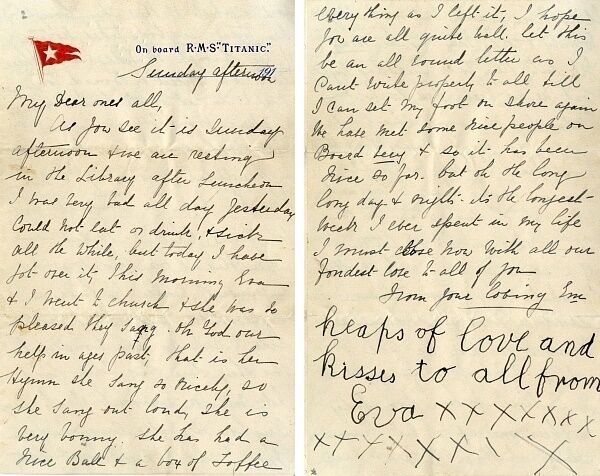 On board R·M·S "TITANIC."
Sunday afternoon 191
My Dear ones all,
As you see it is Sunday
afternoon & we are resting
in the Library after Luncheon
I was very bad all day yesterday
Could not eat or drink, & sick
all the while, but today I have
got over it, this morning Eva
& I went to church & she was so
pleased they sang Oh God our
help in ages past, that is her
Hymn she sang so nicely, so
she sang out loud, she is
very bonny. She has had a
nice Ball & a box of Toffee
everything as I left it, I hope
you are all quite well. let this
be an all round letter as I
Cant write properly to all till
I can set my foot on shore again
We have met some nice people on
Board & so it has been
nice so far. but oh the long
long day & nights its the longest
week I ever spent in my life
I must close now with all our
fondest love to all of you
From your loving Em
heaps of love and
kisses to all from
Eva x x x x x x x
x x x x x x x \ x